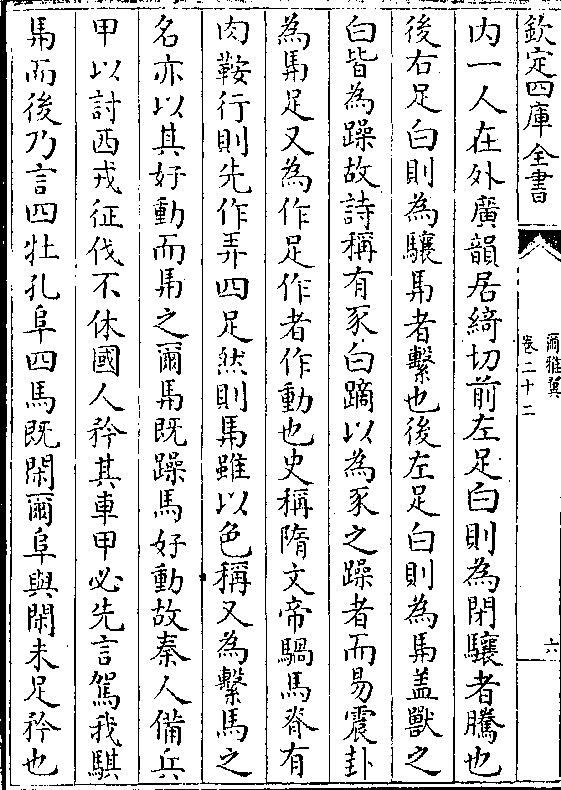 欽定四庫全書
爾雅翼
卷二十二
六
内一人在外廣韻居綺切前左足白則為閉驤者騰也
後右足白則為驤馬者繫也後左足白則為馬盖獸之
白皆為躁故詩稱有豕白蹢以為豕之躁者而易震卦
為馬足又為作足作者作動也史稱隋文帝騧馬脊有
肉鞍行則先作弄四足然則馬雖以色稱又為繫馬之
名亦以其好動而馬之爾馬既躁馬好動故秦人備兵
甲以討西戎征伐不休國人矜其車甲必先言駕我騏
馬而後乃言四牡孔阜四馬既閑爾阜與閑未足矜也